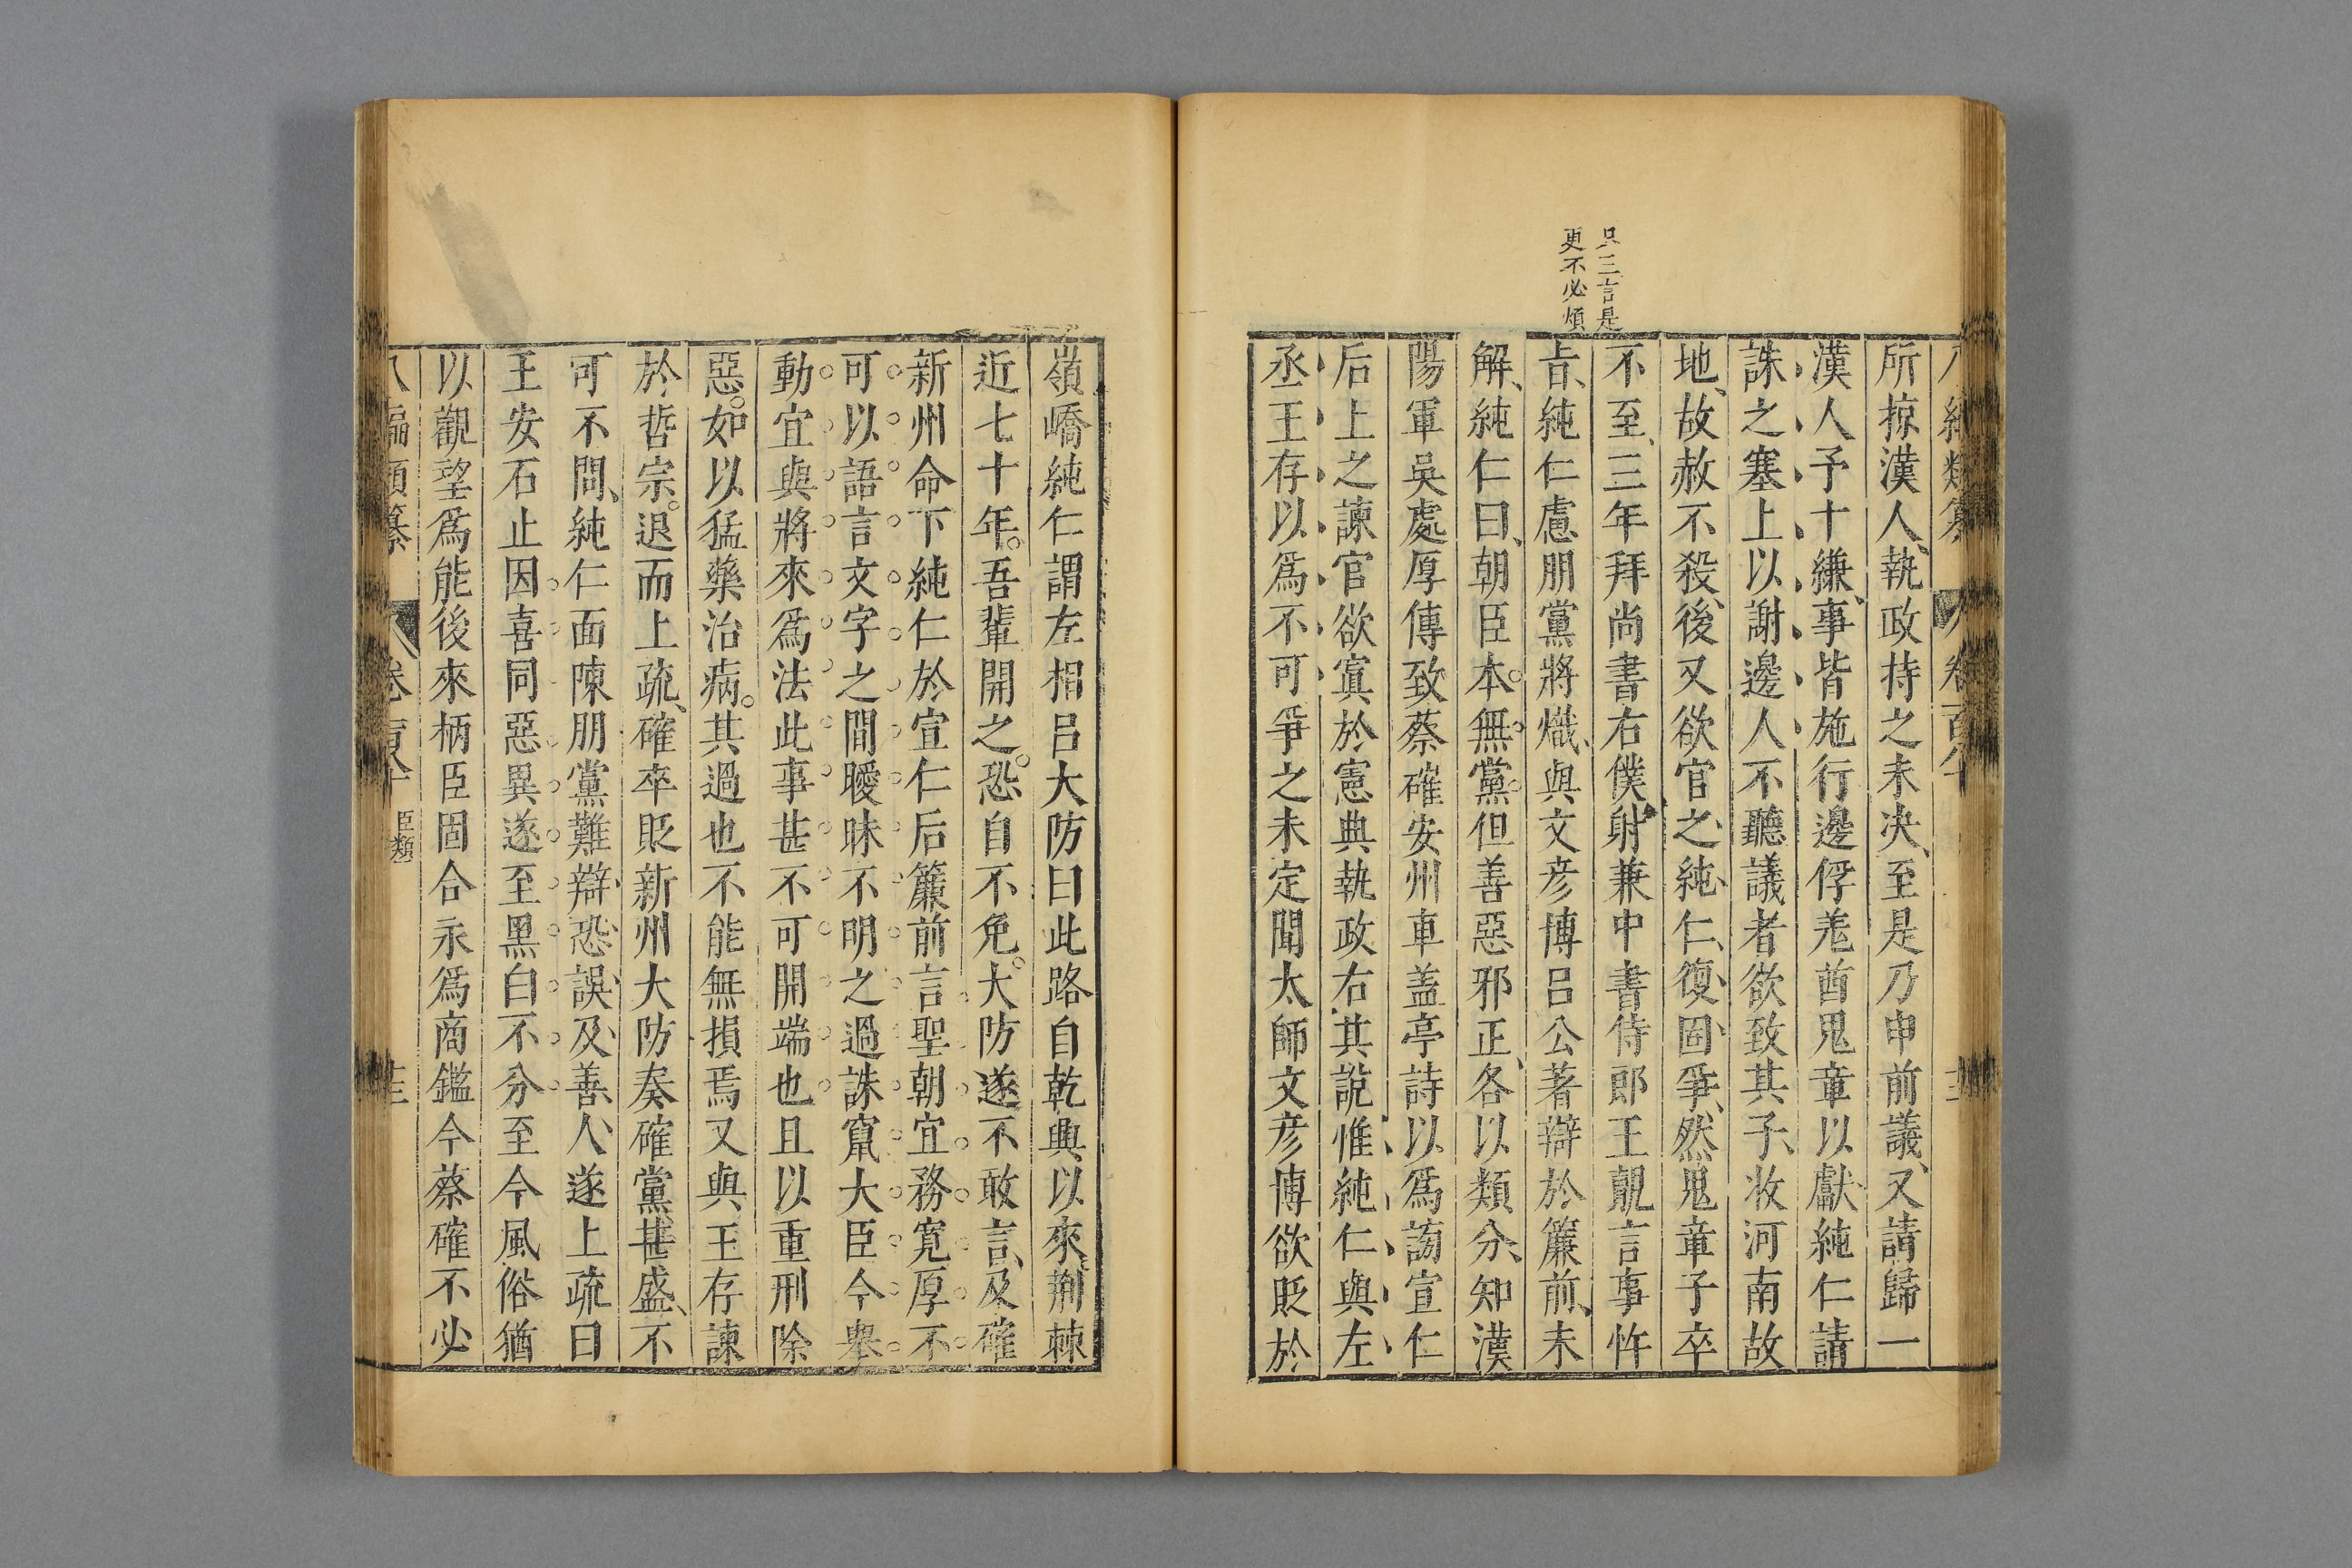 只三言是
更不必煩
所掠漢人執政持之未决至是乃申前議又請歸一
漢人予十縑事皆施行邊俘羌酋鬼章以獻純仁請
誅之塞上以謝邊人不聽議者欲致其子收河南故
地故赦不殺後又欲官之純仁復固爭然鬼章子卒
不至三年拜尚書右僕射兼中書侍郎王覿言事忤
旨純仁慮朋黨將熾與文彦博吕公著辯於簾前未
解純仁曰朝臣本無黨但善惡邪正各以類分知漢
陽軍吳處厚傳致蔡確安州車盖亭詩以爲謗宣仁
后上之諫官欲寘於憲典執政右其説惟純仁與左
丞王存以爲不可爭之未定聞太師文彦博欲貶於
嶺嶠純仁謂左相吕大防曰此路自乾興以來荆棘
近七十年吾輩開之恐自不免大防遂不敢言及確
新州命下純仁於宣仁后簾前言聖朝宜務寛厚不
可以語言文字之間曖昧不明之過誅竄大臣今舉
動宜與將來爲法此事甚不可開端也且以重刑除
惡如以猛藥治病其過也不能無損焉又與王存諫
於哲宗退而上疏確卒貶新州大防奏確黨甚盛不
可不問純仁面陳朋黨難辯恐誤及善人遂上疏曰
王安石止因喜同惡異遂至黑白不分至今風俗猶
以觀望爲能後來柄臣固合永爲商鑑今蔡確不必
八編類纂 卷 臣類